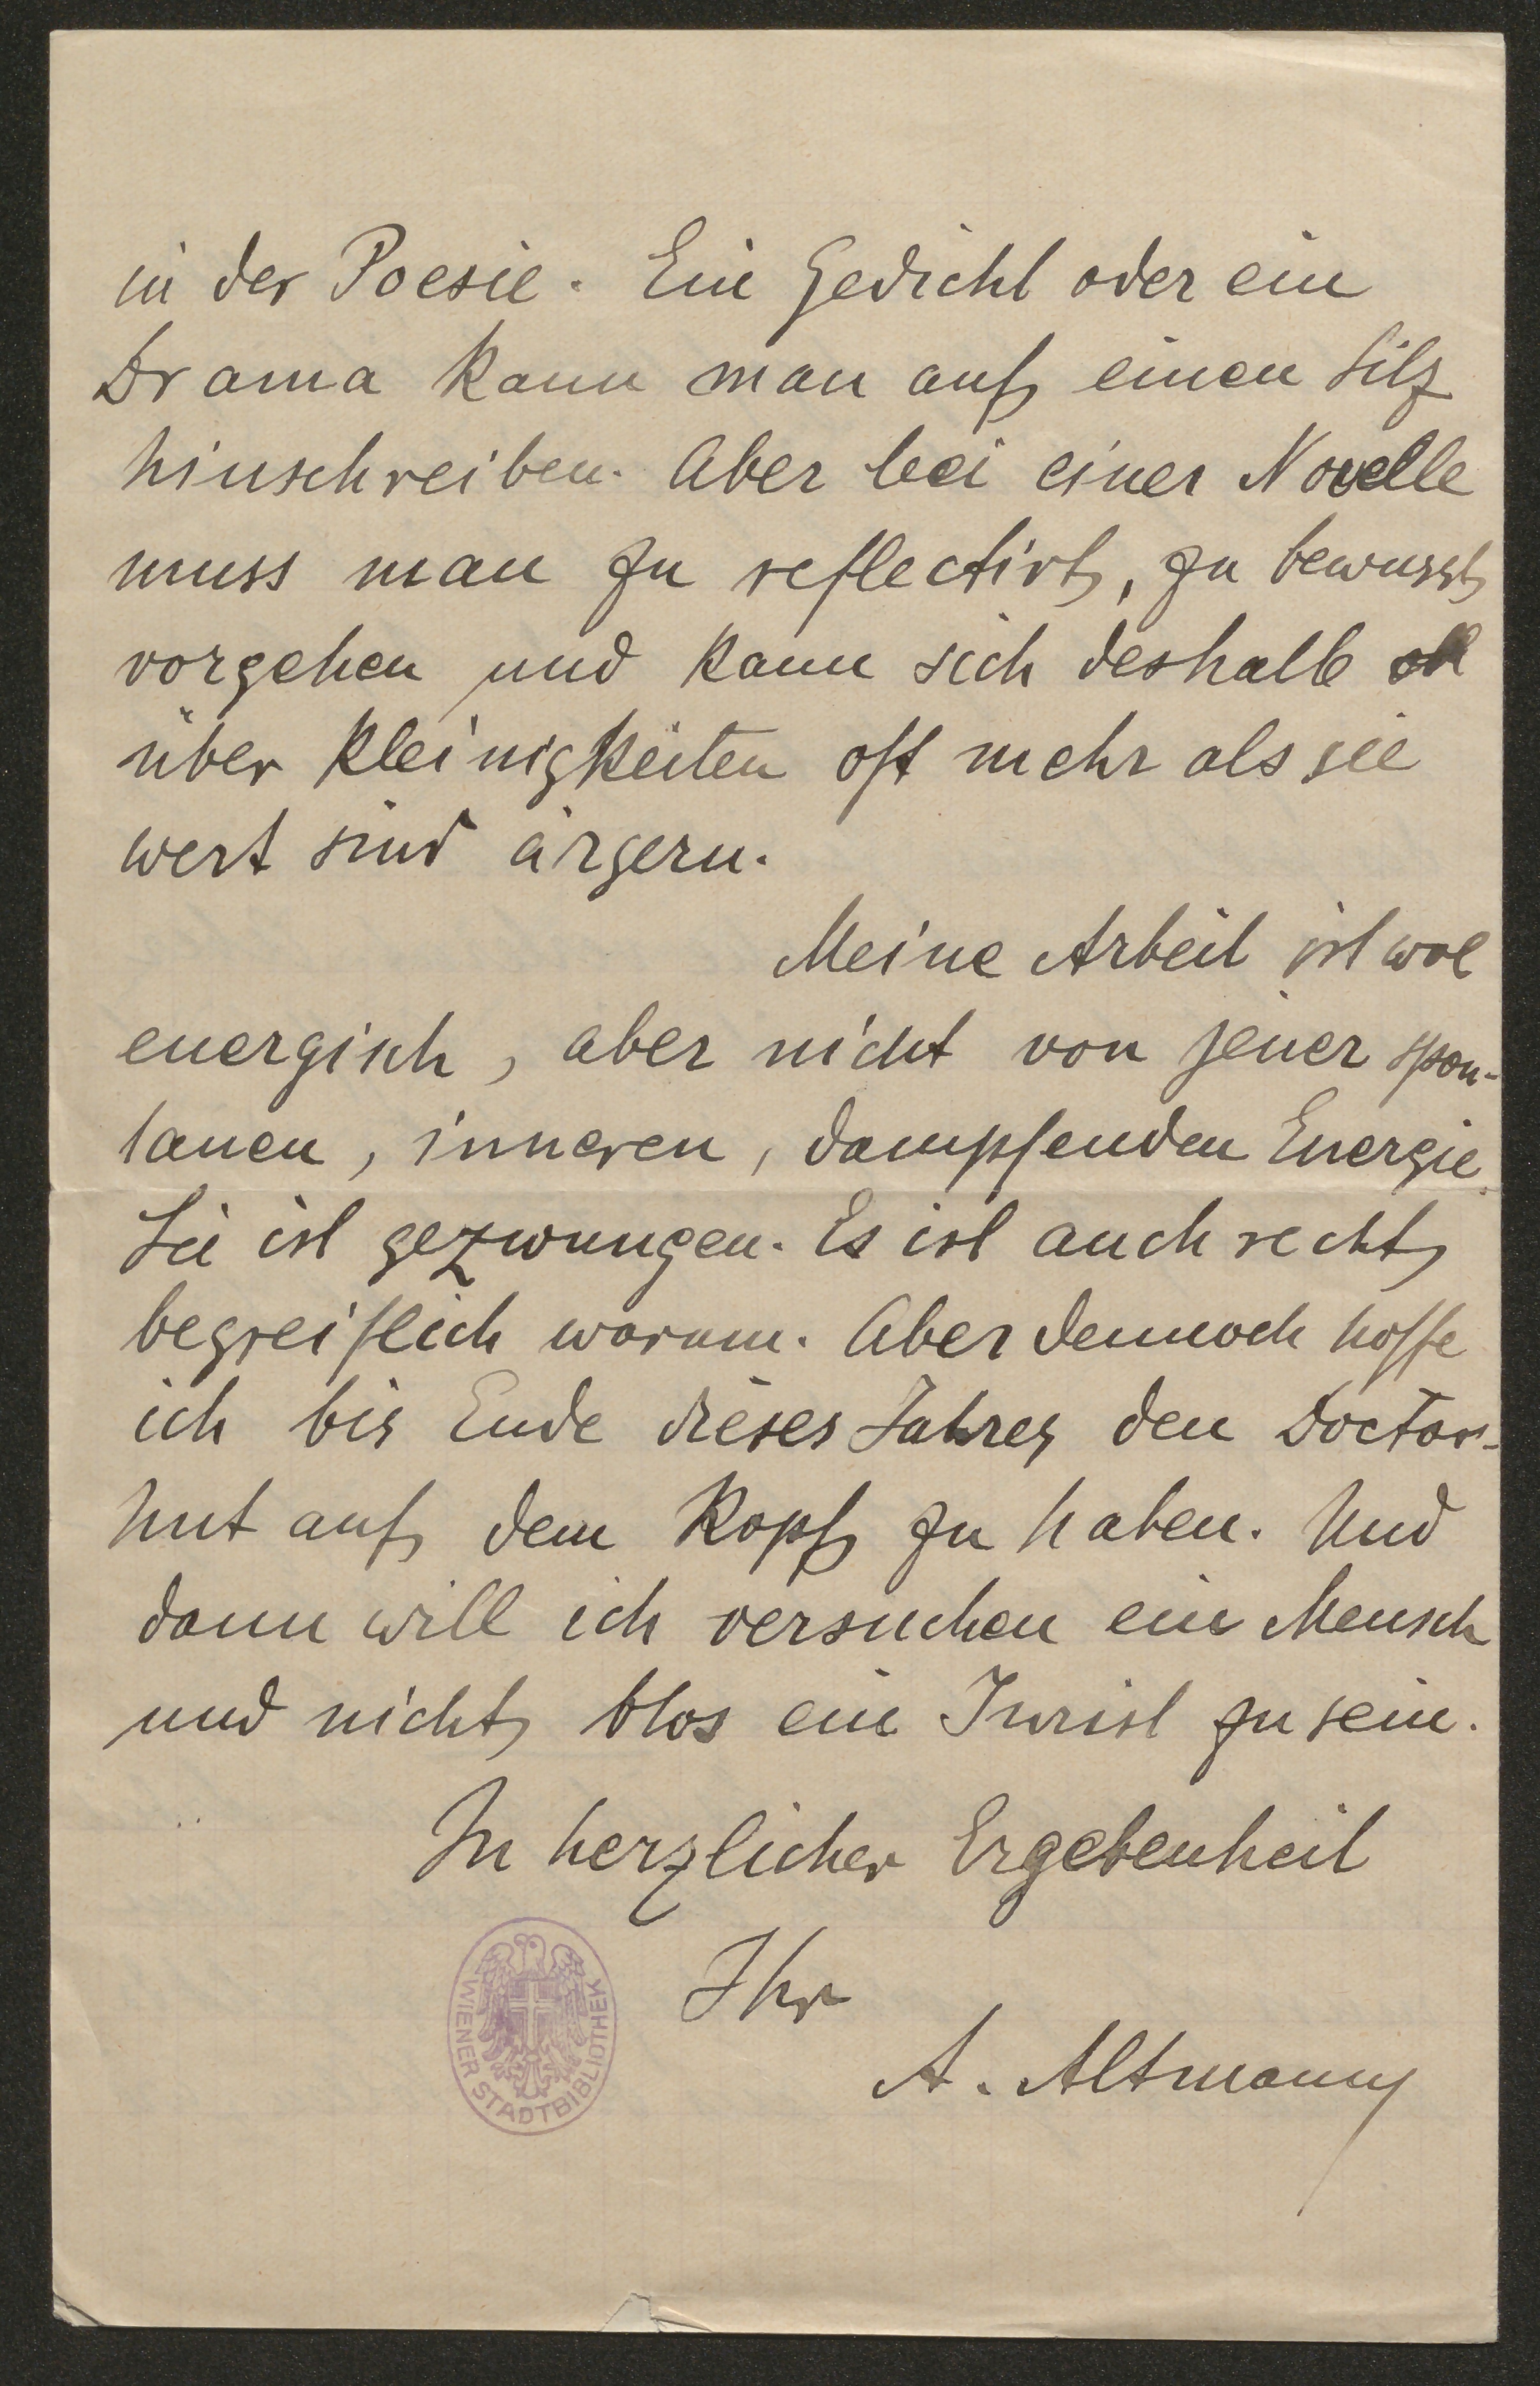 in der Poesie. Ein Gedicht oder ein
Drama kann man auf einen Sitz
hinschreiben. Aber bei einer Novelle
muss man zu reflectirt, zu bewusst
vorgehen und kann sich deshalb
über Kleinigkeiten oft mehr als sie
wert sind ärgern.
Meine Arbeit ist wol
energisch, aber nicht von jener spon-
tanen, inneren, dampfenden Energie.
Sie ist gezwungen. Es ist auch recht
begreiflich warum. Aber dennoch hoffe
ich bis Ende dieses Jahres den Doctor-
hut auf dem Kopf zu haben. Und
dann will ich versuchen ein Mensch
und nicht blos ein Jurist zu sein.
In herzlicher Ergebenheit
Ihr
A. Altmann
WIENER STADTBIBLIOTHEK